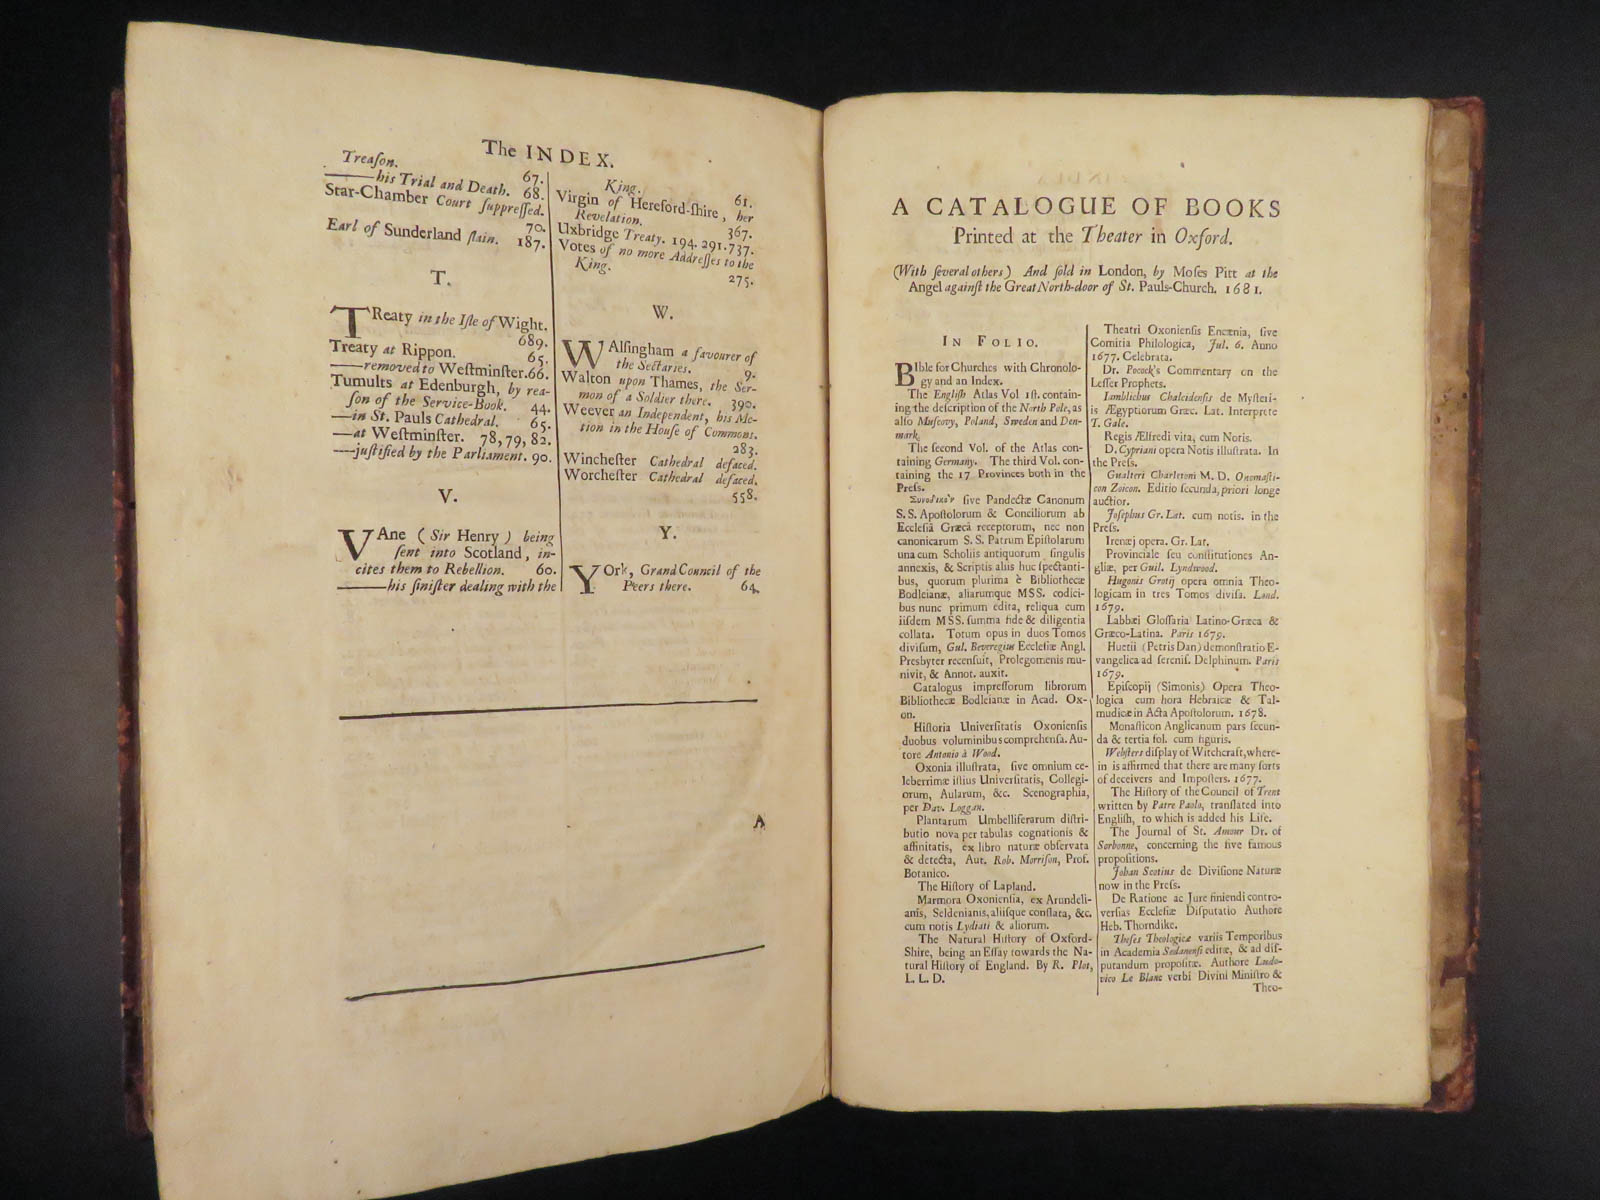 The INDEX.
Treaſon. 67.
——his Trial and Death. 68.
Star-Chamber Court ſuppreſſed.
70.
Earl of Sunderland ſlain. 187.
T.
TReaty in the Iſle of Wight.
689.
Treaty at Rippon. 65.
——removed to Weſtminſter. 66.
Tumults at Edenburgh, by rea-
ſon of the Service-Book. 44.
—in St. Pauls Cathedral. 65.
—at Weſtminſter. 78, 79, 82.
——juſtified by the Parliament. 90.
V.
VAne (Sir Henry) being
ſent into Scotland, in-
cites them to Rebellion. 60.
——his ſiniſter dealing with the
King. 61.
Virgin of Hereford-ſhire, her
Revelation. 367.
Uxbridge Treaty. 194. 291. 737.
Votes of no more Addreſſes to the
King. 275.
W.
WAlſingham a favourer of
the Sectaries. 9.
Walton upon Thames, the Ser-
mon of a Soldier there. 390.
Weever an Independent, his Mo-
tion in the Houſe of Commons.
283.
Wincheſter Cathedral defaced.
Worcheſter Cathedral defaced.
558.
Y.
YOrk, Grand Council of the
Peers there. 64.
A
A CATALOGUE OF BOOKS
Printed at the Theater in Oxford.
(With ſeveral others) And ſold in London, by Moſes Pitt at the
Angel againſt the Great North-door of St. Pauls-Church. 1681.
IN FOLIO.
BIble for Churches with Chronolo-
gy and an Index.
The Engliſh Atlas Vol 1ſt. contain-
ing the deſcription of the North Pole, as
alſo Muſcovy, Poland, Sweden and Den-
mark.
The ſecond Vol. of the Atlas con-
taining Germany. The third Vol. con-
taining the 17 Provinces both in the
Preſs.
ſive Pandectæ Canonum
S. S. Apoſtolorum & Conciliorum ab
Eccleſiâ Græcâ receptorum, nec non
canonicarum S. S. Patrum Epiſtolarum
una cum Scholiis antiquorum ſingulis
annexis, & Scriptis aliis huc ſpectanti-
bus, quorum plurima è Bibliothecæ
Bodleianæ, aliarumque MSS. codici-
bus nunc primum edita, reliqua cum
iiſdem MSS. ſumma fide & diligentia
collata. Totum opus in duos Tomos
diviſum, Gul. Beveregius Eccleſiæ Angl.
Presbyter recenſuit, Prolegomenis mu-
nivit, & Annot. auxit.
Catalogus impreſſorum librorum
Bibliothecæ Bodleianæ in Acad. Ox-
on.
Hiſtoria Univerſitatis Oxonienſis
duobus voluminibus comprehenſa. Au-
tore Antonio à Wood.
Oxonia illuſtrata, ſive omnium ce-
leberrimæ iſtius Univerſitatis, Collegi-
orum, Aularum, &c. Scenographia,
per Dav. Loggan.
Plantarum Umbelliferarum diſtri-
butio nova per tabulas cognationis &
affinitatis, ex libro naturæ obſervata
& detecta, Aut. Rob. Morriſon, Prof.
Botanico.
The Hiſtory of Lapland.
Marmora Oxonienſia, ex Arundeli-
anis, Seldenianis, aliiſque conflata, &c.
cum notis Lydiati & aliorum.
The Natural Hiſtory of Oxford-
Shire, being an Eſſay towards the Na-
tural Hiſtory of England. By R. Plot,
L. L. D.
Theatri Oxonienſis Encænia, ſive
Comitia Philologica, Jul. 6. Anno
1677. Celebrata.
Dr. Pocock's Commentary on the
Leſſer Prophets.
Iamblichus Chalcidenſis de Myſteri-
is Ægyptiorum Græc. Lat. Interprete
T. Gale.
Regis Ælfredi vita, cum Notis.
D. Cypriani opera Notis illuſtrata. In
the Preſs.
Gualteri Charletoni M. D. Onomaſti-
con Zoicon. Editio ſecunda, priori longe
auctior.
Joſephus Gr. Lat. cum notis. in the
Preſs.
Irenæj opera. Gr. Lat.
Provinciale ſeu conſtitutiones An-
gliæ, per Guil. Lyndwood.
Hugonis Grotij opera omnia Theo-
logicam in tres Tomos diviſa. Lond.
1679.
Labbæi Gloſſaria Latino-Græca &
Græco-Latina. Paris 1679.
Huetii (Petris Dan) demonſtratio E-
vangelica ad ſereniſ. Delphinum. Paris
1679.
Epiſcopij (Simonis) Opera Theo-
logica cum hora Hebraicæ & Tal-
mudicæ in Acta Apoſtolorum. 1678.
Monaſticon Anglicanum pars ſecun-
da & tertia fol. cum figuris.
Webſters diſplay of Witchcraft, where-
in is affirmed that there are many ſorts
of deceivers and Impoſters. 1677.
The Hiſtory of the Council of Trent
written by Patre Paolo, tranſlated into
Engliſh, to which is added his Life.
The Journal of St. Amour Dr. of
Sorbonne, concerning the five famous
propoſitions.
Johan Scotius de Diviſione Naturæ
now in the Preſs.
De Ratione ac Jure finiendi contro-
verſias Eccleſiæ Diſputatio Authore
Heb. Thorndike.
Theſes Theologicæ variis Temporibus
in Academia Sedanenſi editæ, & ad diſ-
putandum propoſitæ. Authore Ludo-
vico Le Blanc verbi Divini Miniſtro &
Theo-